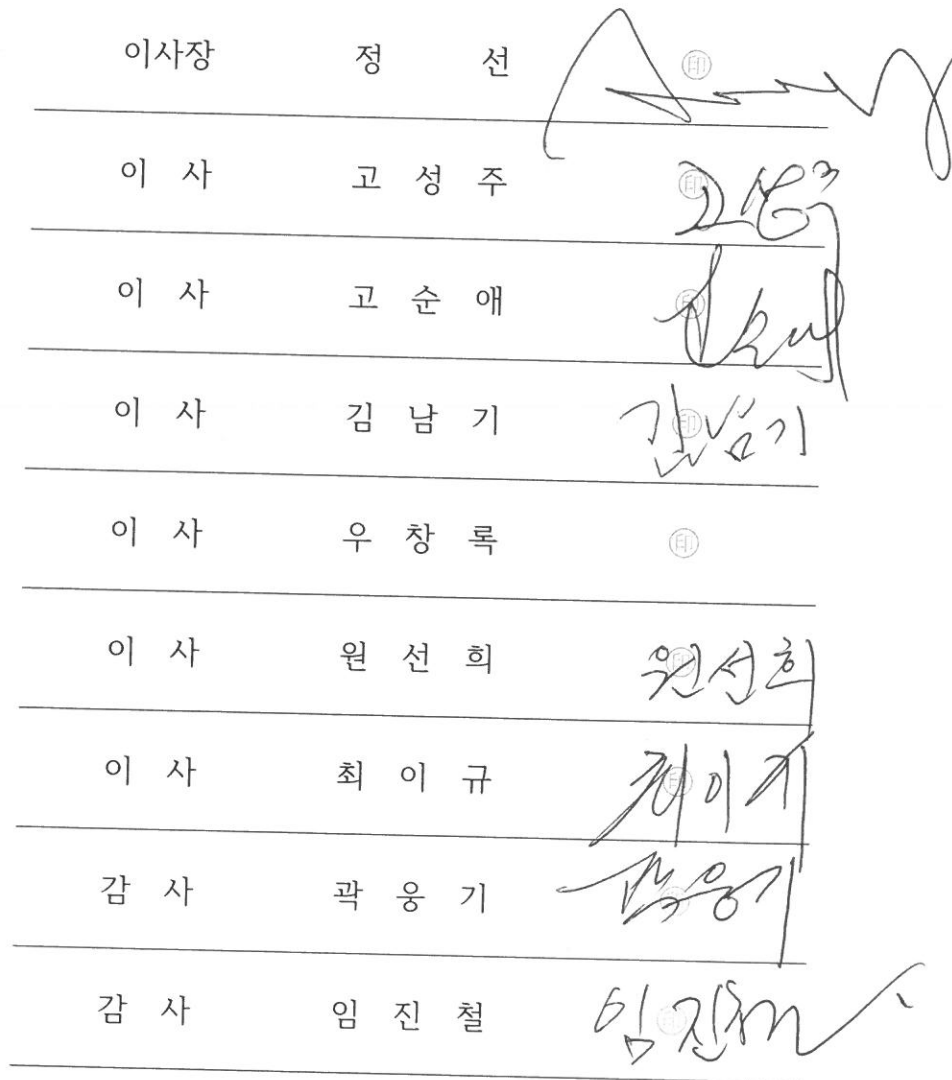 이사장 정 선 ㊞
이 사 고 성 주 ㊞ 고성주
이 사 고 순 애 ㊞
이 사 김 남 기 ㊞ 김남기
이 사 우 창 록 ㊞
이 사 원 선 희 ㊞ 원선희
이 사 최 이 규 ㊞ 최이규
감 사 곽 웅 기 ㊞ 곽웅기
감 사 임 진 철 ㊞ 임진철